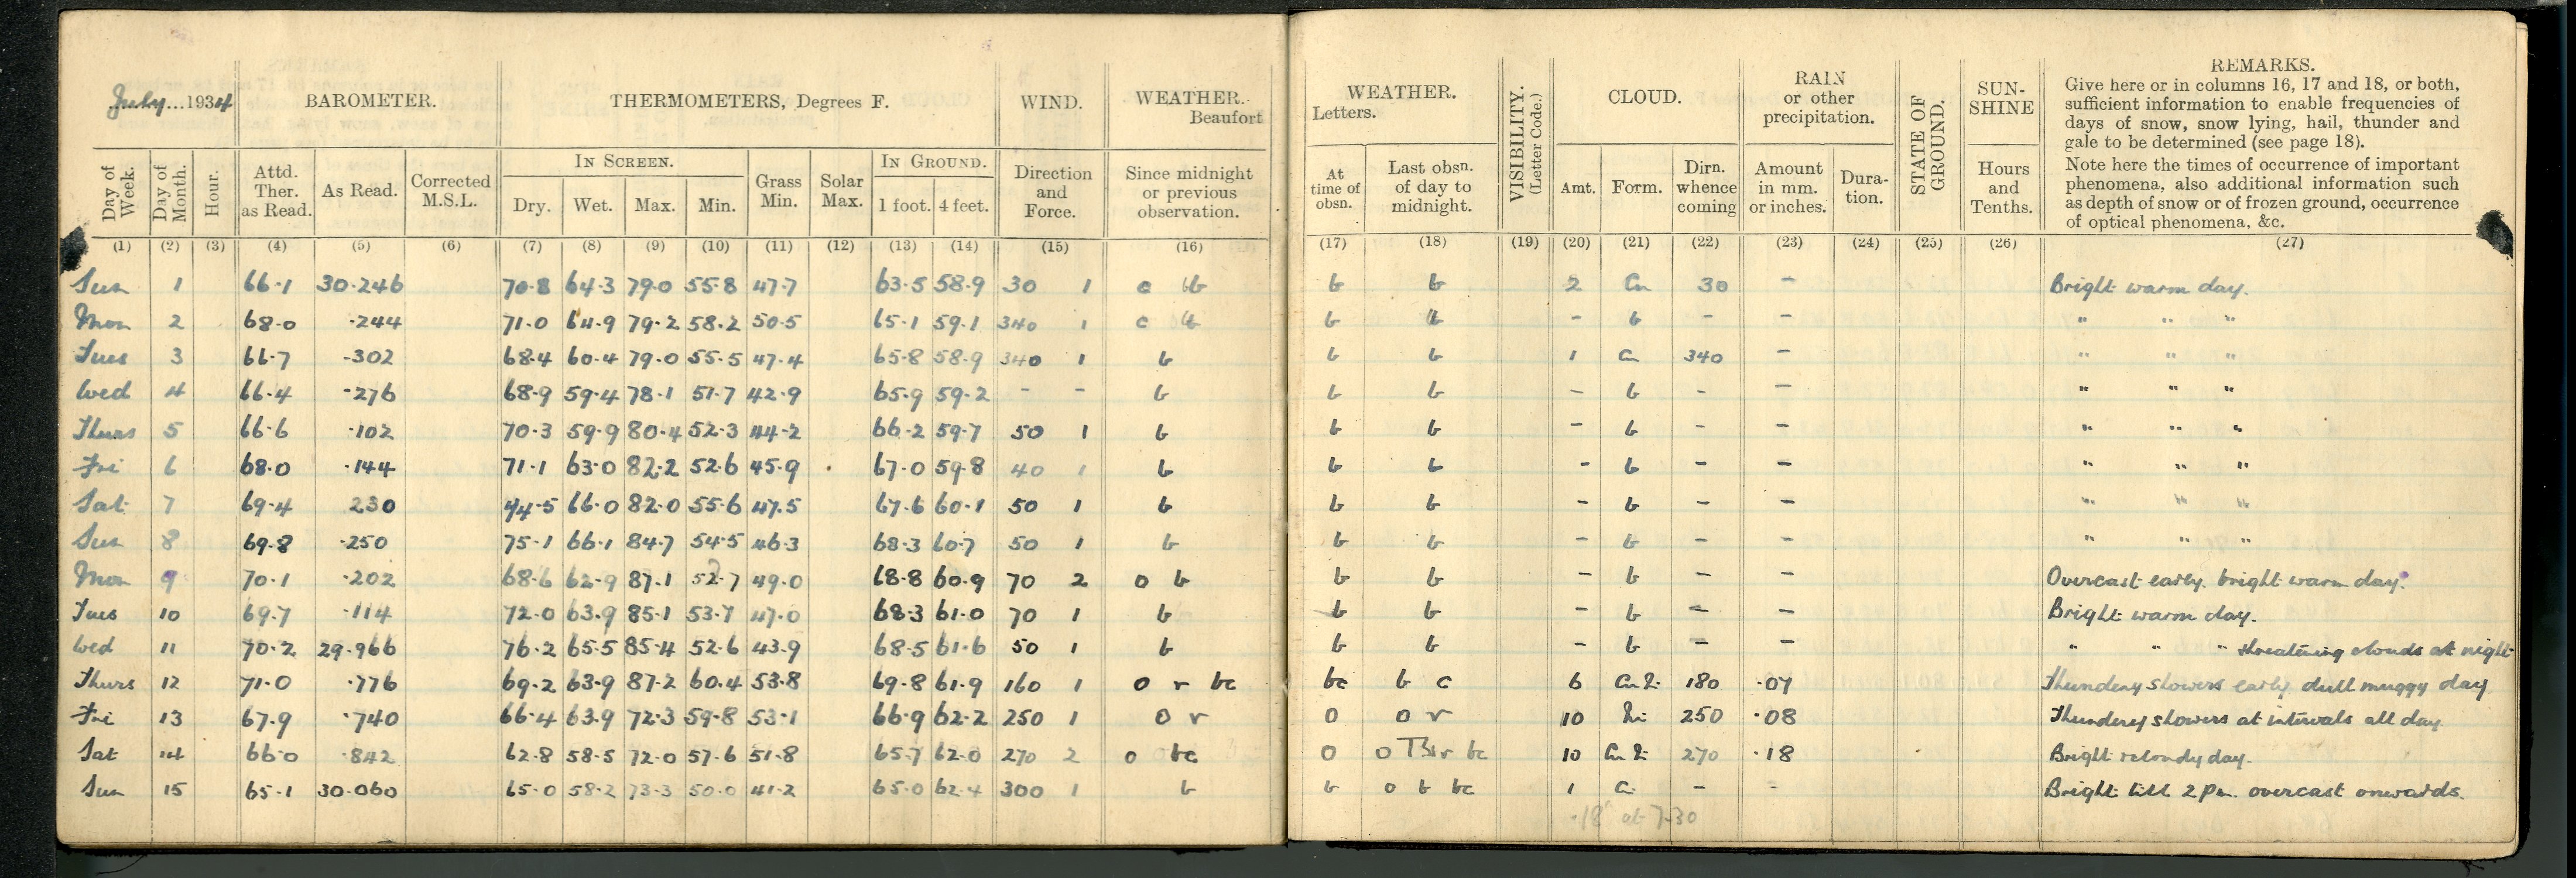 July 1934 BAROMETER. THERMOMETERS, Degrees F. WIND. WEATHER. Beaufort
Day of Week. Day of Month. Hour. Attd. Ther. as Read. As Read. Corrected M.S.L. IN SCREEN. Dry. Wet. Max. Min. Grass Min. Solar Max. IN GROUND. 1 foot. 4 feet. Direction and Force. Since midnight or previous observation.
(1) (2) (3) (4) (5) (6) (7) (8) (9) (10) (11) (12) (13) (14) (15) (16)
Sun 1 66.1 30.246 70.8 64.3 79.0 55.8 47.7 63.5 58.9 30 1 c b
Mon 2 68.0 .244 71.0 64.9 79.2 58.2 50.5 65.1 59.1 340 1 c b
Tues 3 66.7 .302 68.4 60.4 79.0 55.5 47.4 65.8 58.9 340 1 b
Wed 4 66.4 .276 68.9 59.4 78.1 51.7 42.9 65.9 59.2 - - b
Thurs 5 66.6 .102 70.3 59.9 80.4 52.3 44.2 66.2 59.7 50 1 b
Fri 6 68.0 .144 71.1 63.0 82.2 52.6 45.9 67.0 59.8 40 1 b
Sat 7 69.4 230 74.5 66.0 82.0 55.6 47.5 67.6 60.1 50 1 b
Sun 8 69.8 .250 75.1 66.1 84.7 54.5 46.3 68.3 60.7 50 1 b
Mon 9 70.1 .202 68.6 62.9 87.1 52.7 49.0 68.8 60.9 70 2 o b
Tues 10 69.7 .114 72.0 63.9 85.1 53.7 47.0 68.3 61.0 70 1 b
Wed 11 70.2 29.966 76.2 65.5 85.4 52.6 43.9 68.5 61.6 50 1 b
Thurs 12 71.0 .776 69.2 63.9 87.2 60.4 53.8 69.8 61.9 160 1 o r bc
Fri 13 67.9 .740 66.4 63.9 72.3 59.8 53.1 66.9 62.2 250 1 o r
Sat 14 66.0 .842 62.8 58.5 72.0 57.6 51.8 65.7 62.0 270 2 o bc
Sun 15 65.1 30.060 65.0 58.2 73.3 50.0 41.2 65.0 62.4 300 1 b
WEATHER. Letters. VISIBILITY. (Letter Code.) CLOUD. RAIN or other precipitation. STATE OF GROUND. SUN-SHINE REMARKS.
Give here or in columns 16, 17 and 18, or both,
sufficient information to enable frequencies of
days of snow, snow lying, hail, thunder and
gale to be determined (see page 18).
Note here the times of occurrence of important
phenomena, also additional information such
as depth of snow or of frozen ground, occurrence
of optical phenomena, &c.
At time of obsn. Last obsn. of day to midnight. Amt. Form. Dirn. whence coming Amount in mm. or inches. Dura-tion. Hours and Tenths.
(17) (18) (19) (20) (21) (22) (23) (24) (25) (26) (27)
b b 2 Cu 30 - Bright warm day.
b b - b - - " " "
b b 1 Cu 340 - " " "
b b - b - - " " "
b b - b - - " " "
b b - b - - " " "
b b - b - - " " "
b b - b - - " " "
b b - b - - Overcast early. bright warm day.
b b - b - - Bright warm day.
b b - b - - " " " threatening clouds at night
bc b c 6 180 .07 Thundery showers early dull muggy day
o o r 10 Ni 250 .08 Thundery showers at intervals all day
o o bc 10 270 .18 Bright & cloudy day.
b o b bc 1 - - Bright till 2 pm. overcast onwards.
.18 at 7-30